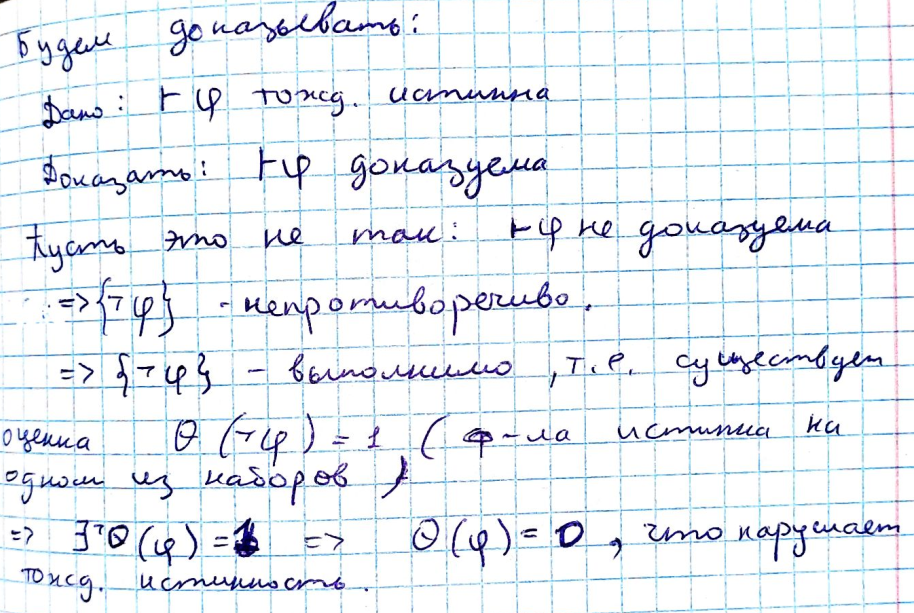 Будем доказывать:
Дано: ⊢φ тожд. истинна
Доказать: ⊢φ доказуема
Пусть это не так: ⊢φ не доказуема
=> {¬φ} - непротиворечиво.
=> {¬φ} - выполнимо, т.е. существует
оценка Θ (¬φ) = 1, ( ф-ла истинна на
одном из наборов )
=> ∃¬Θ(φ) = 1 => Θ(φ) = 0, что нарушает
тожд. истинность.